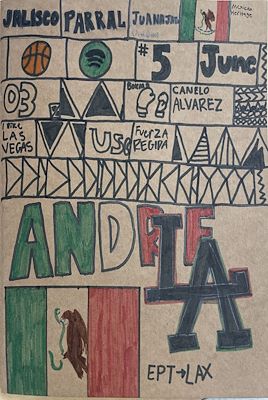 JALISCO PARRAL JUANAJUA
Mexican
Heritage
#5 June
03 Boxing CANELO
ALVAREZ
LAS
VEGAS USC FUERZA
REGIDA
ANDRE
LA
EPT→LAX